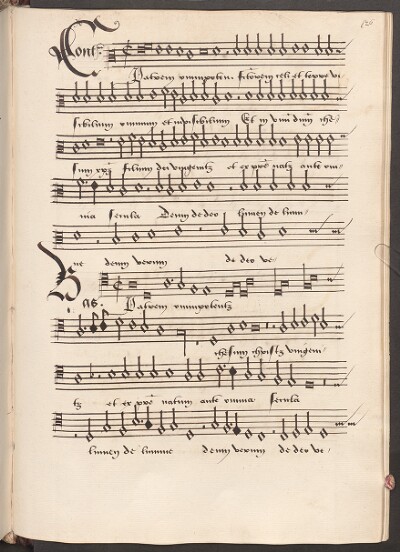 Cont
Patrem omnipoten. factorem celi et terre vi
sibilium omnium et invisibilium Et in unum dnm ihe
sum filium dei unigenitz et ex pre natz ante om
nia secula Deum de deo lumen de lumi
ne deum verum de deo ve
Bas.
Patrem omnipotentz
ihesum christz unigeni
tz et ex pre natum ante omnia secula
lumen de lumine deum verum de deo ve